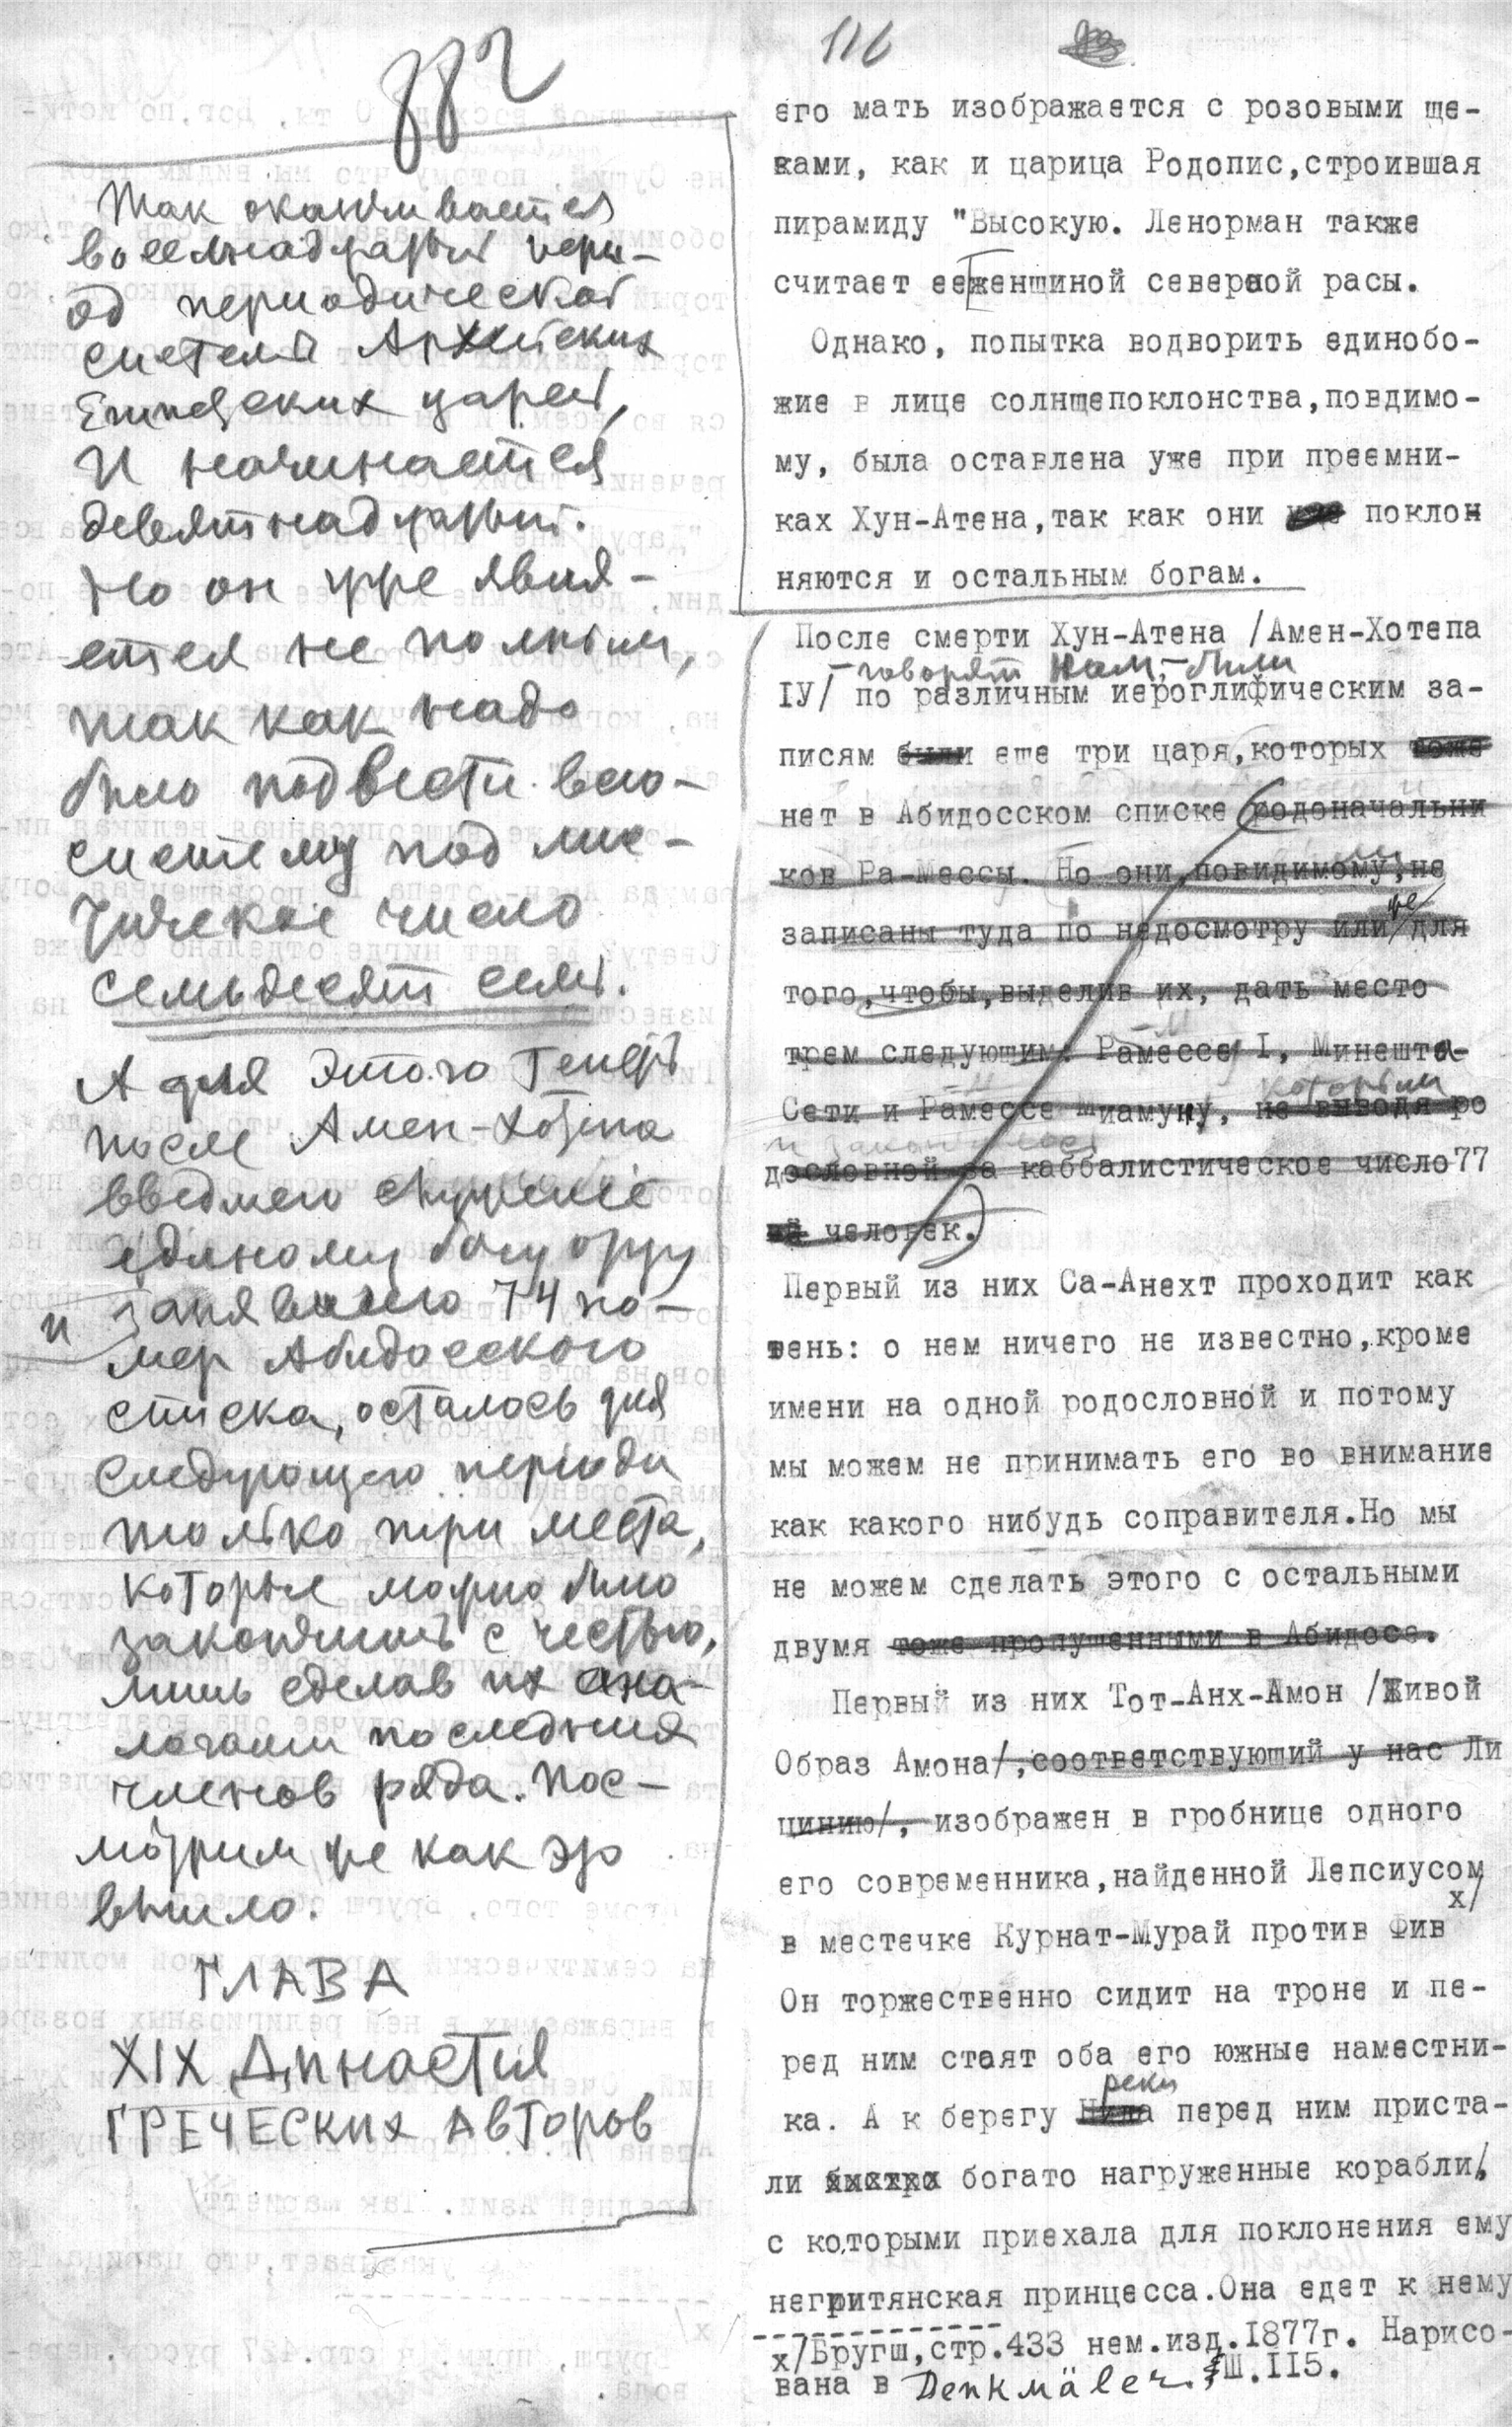 882
Так оканчивается
восемнадцатый пери-
од периодической
системы Архейских
Египетских царей,
И начинается
девятнадцатый.
Но он уже явля-
ется не полным,
так как надо
было подвести всю
систему под мис-
тическое число
семьдесят семь.
А для этого теперь
после Амен-Хотепа
введшего служение
единому богу
и занявшего 74 но-
мер Абидосского
списка, осталось для
следующего периода
только три места,
которые можно было
закончить с честью,
лишь сделав их ана-
логами последних
членов ряда. Пос-
мотрим же как это
вышло.
ГЛАВА
XIX Династия
ГРЕЧЕСКИХ АВТОРОВ
116
его мать изображается с розовыми ще-
ками, как и царица Родопис,строившая
пирамиду "Высокую. Ленорман также
считает ее женщиной северной расы.
Однако, попытка водворить единобо-
жие в лице солнщепоклонства,повдимо-
му, была оставлена уже при преемни-
ках Хун-Атена,так как они поклон
няются и остальным богам.
После смерти Хун-Атена /Амен-Хотепа
- говорят нам,- были
IУ/ по различным иероглифическим за-
писям были еще три царя,которых тоже
нет в Абидосском списке (родоначальни
ков Ра-Мессы. Но они,повидимому,не
записаны туда по недосмотру или же для
того,чтобы,выделив их, дать место
трем следующим: Рамессе I, Минешта-
Сети и Рамессе Миамуну, которыми не выводя ро
и закончилось
дословной за каббалистическое число 77
человек.)
Первый из них Са-Анехт проходит как
тень: о нем ничего не известно,кроме
имени на одной родословной и потому
мы можем не принимать его во внимание
как какого нибудь соправителя.Но мы
не можем сделать этого с остальными
двумя тоже пропущенными в Абидосе.
Первый из них Тот-Анх-Амон /Живой
Образ Амона/,соответствующий у нас Ли
цинию/, изображен в гробнице одного
его современника,найденной Лепсиусом
в местечке Курнат-Мурай против Фив х/
Он торжественно сидит на троне и пе-
ред ним стаят оба его южные наместни-
реки
ка. А к берегу Нила перед ним приста-
ли быстро богато нагруженные корабли,
с которыми приехала для поклонения ему
негритянская принцесса.Она едет к нему
х/Бругш,стр.433 нем.изд.1877г. Нарисо-
вана в Denkmäler. Ш.II5.